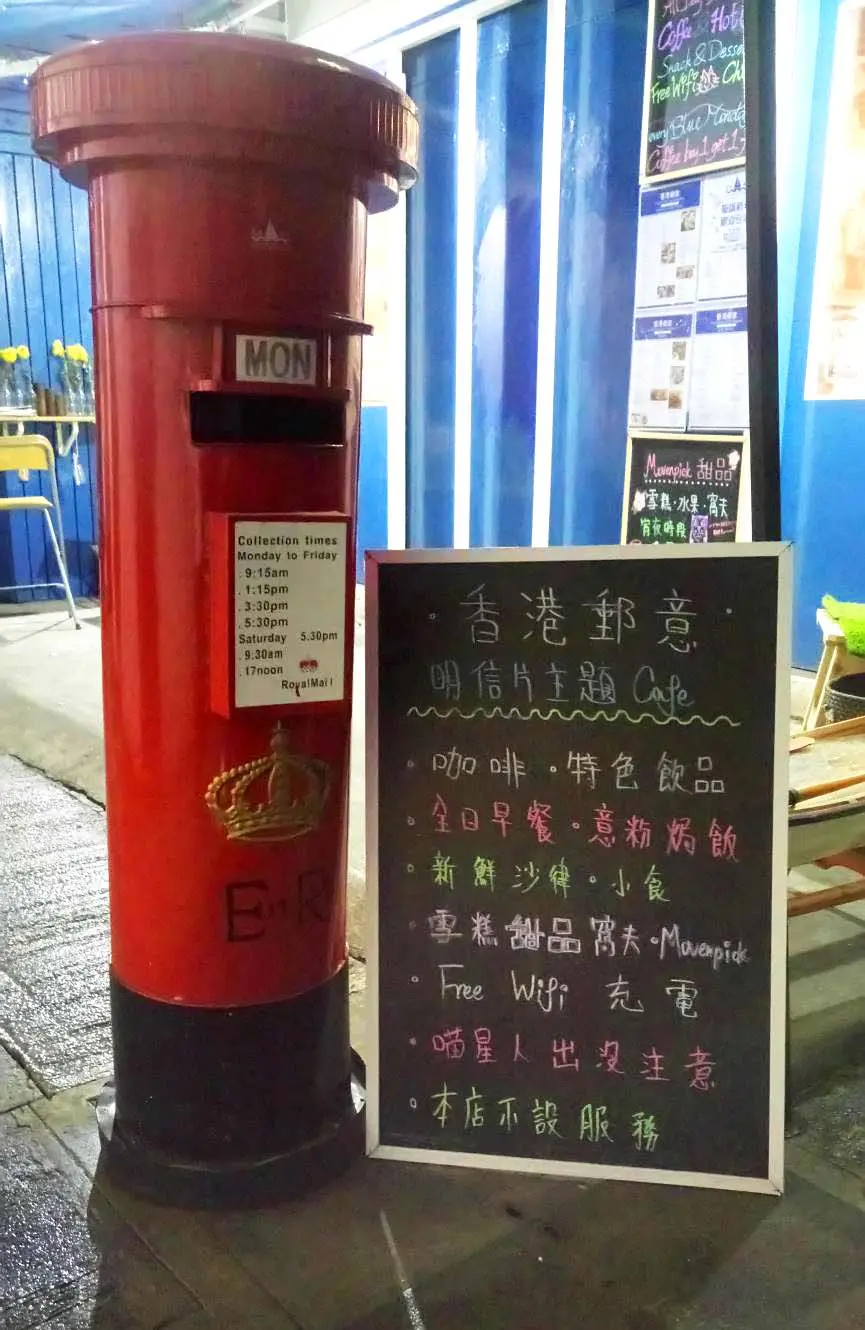 Coffee & Hot
Snack & Desse
Free Wifi
every Blue Monday
Coffee buy 1 get 1
Movenpick 甜品
雪糕·水果·窩夫
宵夜時段
MON
Collection times
Monday to Friday
. 9:15am
. 1:15pm
. 3:30pm
. 5:30pm
Saturday 5.30pm
. 9:30am
. 17noon
RoyalMail
E II R
·香港郵意·
明信片主題 Cafe
·咖啡·特色飲品
·全日早餐·意粉焗飯
·新鮮沙律·小食
·雪糕甜品窩夫·Movenpick
·Free Wifi 充電
·喵星人出沒注意
·本店不設服務